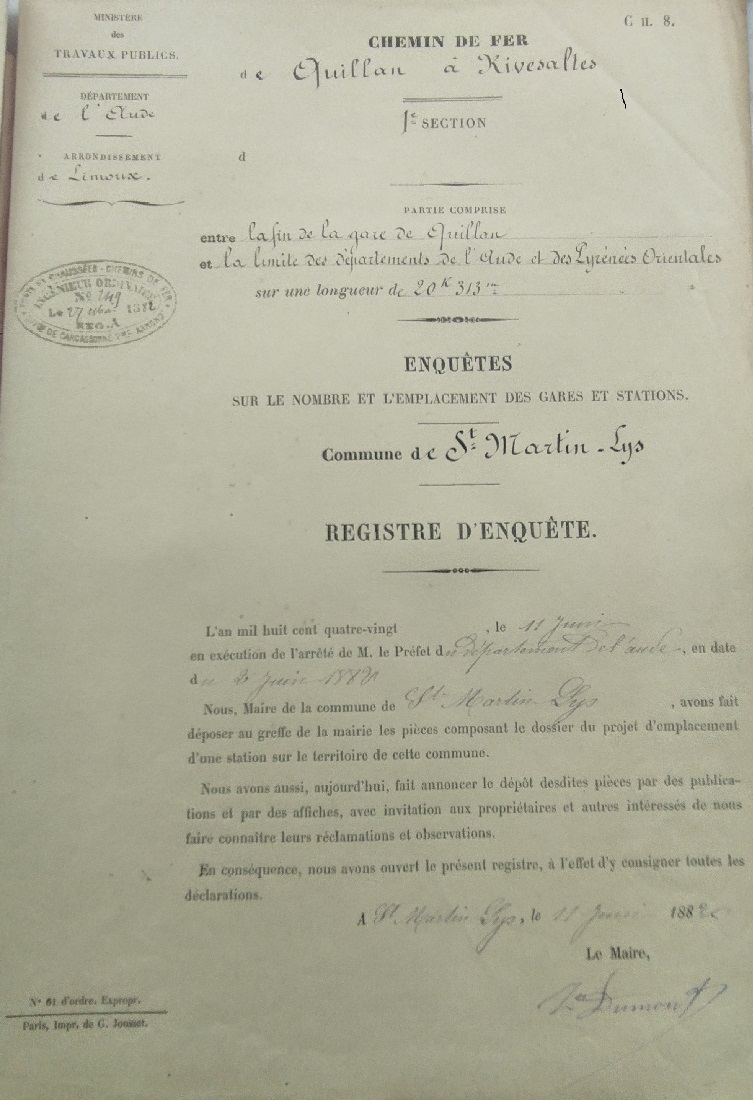 MINISTÈRE
des
TRAVAUX PUBLICS.
DÉPARTEMENT
de l'Aude
ARRONDISSEMENT
de Limoux.
C n. 8.
CHEMIN DE FER
de Quillan à Rivesaltes
1re SECTION
d
PARTIE COMPRISE
entre la fin de la gare de Quillan
et la limite des départements de l'Aude et des Pyrénées Orientales
sur une longueur de 20 K 313 m
PONTS ET CHAUSSÉES - CHEMINS DE FER
INGÉNIEUR ORDINAIRE
No 2419
Le 27
REG. A
DE CARCASSONNE
ENQUÊTES
SUR LE NOMBRE ET L'EMPLACEMENT DES GARES ET STATIONS.
Commune de St Martin-Lys
REGISTRE D'ENQUÊTE.
L'an mil huit cent quatre-vingt , le 11 Juin
en exécution de l'arrêté de M. le Préfet du département de l'aude, en date
du 2 Juin 1882
Nous, Maire de la commune de St Martin Lys , avons fait
déposer au greffe de la mairie les pièces composant le dossier du projet d'emplacement
d'une station sur le territoire de cette commune.
Nous avons aussi, aujourd'hui, fait annoncer le dépôt desdites pièces par des publica-
tions et par des affiches, avec invitation aux propriétaires et autres intéressés de nous
faire connaître leurs réclamations et observations.
En conséquence, nous avons ouvert le présent registre, à l'effet d'y consigner toutes les
déclarations.
A St Martin Lys, le 11 Juin 1882
Le Maire,
Dumont
No 61 d'ordre. Expropr.
Paris, Impr. de G. Jousset.